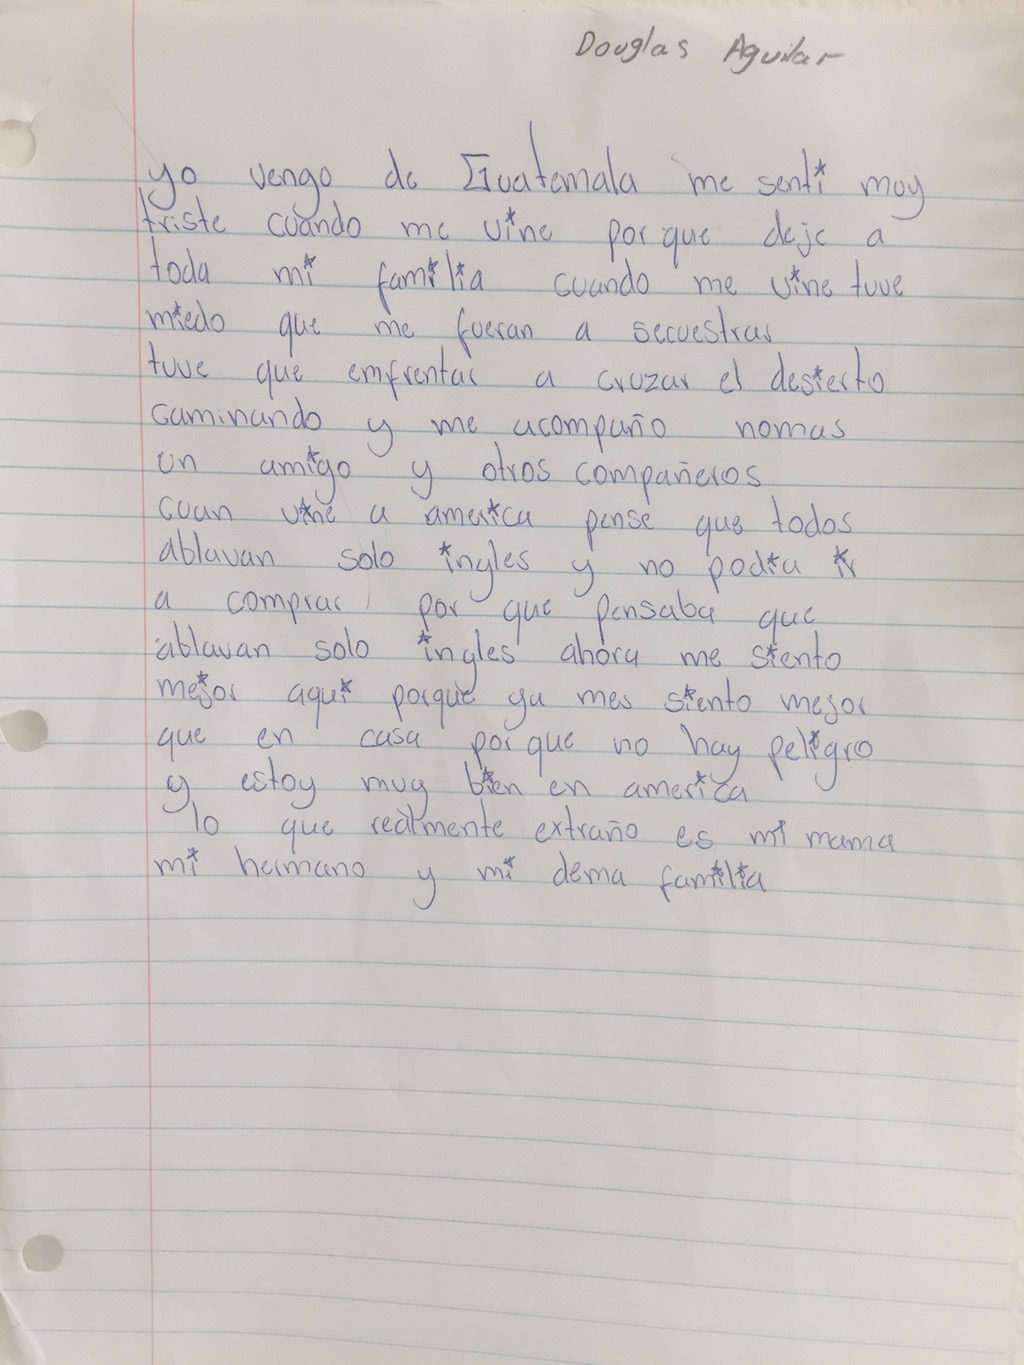 Douglas Aguilar
yo vengo de Guatemala me senti muy
triste cuando me vine por que deje a
toda mi familia cuando me vine tuve
miedo que me fueran a secuestrar
tuve que emfrentar a cruzar el desierto
caminando y me acompaño nomas
un amigo y otros compañeros
cuan vine a america pense que todos
ablavan solo ingles y no podia ir
a comprar por que pensaba que
ablavan solo ingles ahora me siento
mejor aqui porque ya mes siento mejor
que en casa por que no hay peligro
y estoy muy bien en america
lo que realmente extraño es mi mama
mi hermano y mi dema familia